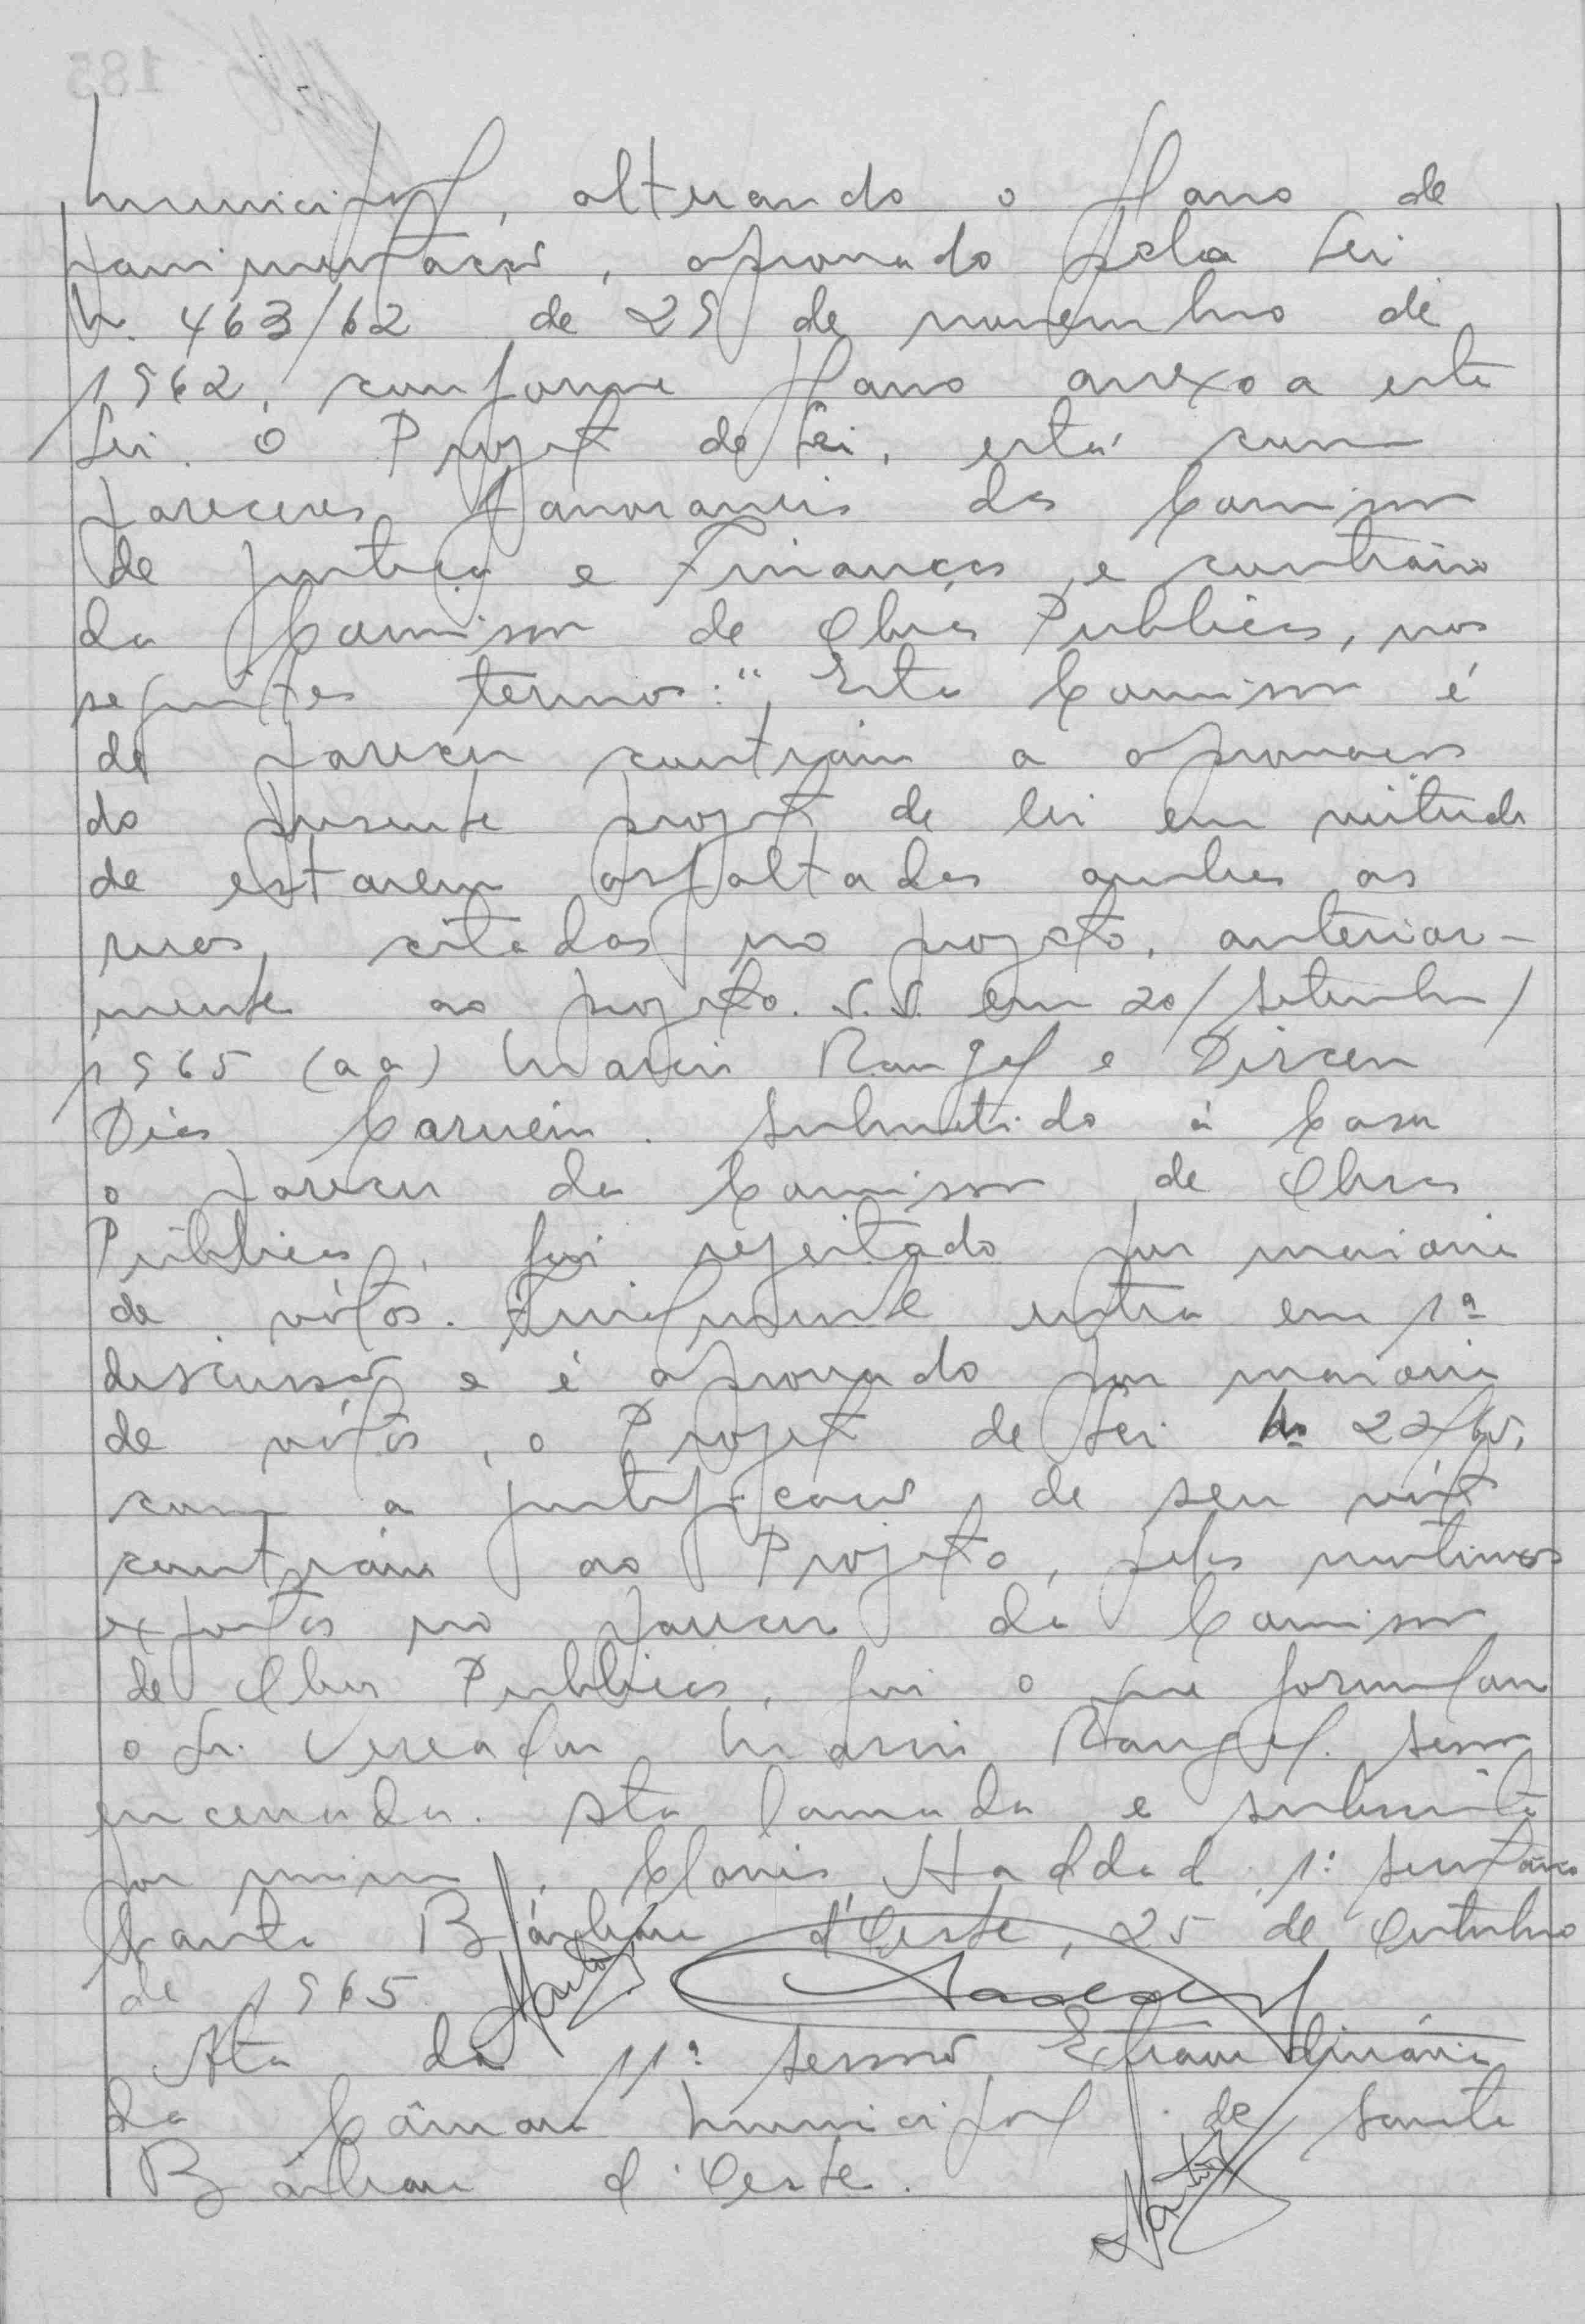 Municipal, alterando o plano de
pavimentação, aprovado pela Lei
n. 463/62 de 29 de novembro de
1962, conforme plano anexo a esta
Lei. O Projeto de Lei, está com
pareceres favoraveis da Comissão
de Justiça e Finanças, e contrário
da Comissão de Obras Publicas, nos
seguintes termos: "Esta Comissão é
de parecer contrário a aprovação
do presente projeto de lei em virtude
de estarem asfaltadas ambas as
ruas, citadas no projeto, anterior-
mente ao projeto. S.S. em 20/setembro/
1965 (aa) Mario Rangel e Dirceu
Dias Carneiro. Submetido à Casa
o parecer da Comissão de Obras
Públicas, foi rejeitado por maioria
de vótos. Finalmente entra em 1ª
discussão e é aprovado por maioria
de vótos, o Projeto de Lei no 22/65,
com a justificação de seu vóto
contrário ao Projeto, pelos motivos
expostos no parecer da Comissão
de Obras Publicas, foi o que formulou
o Sr. Vereador Mario Rangel. Sessão
encerrada. Ata lavrada e subscrita
por mim, Clovis Haddad, 1º Secretário
Santa Bárbara d'Oeste, 25 de Outubro
de 1965.
Ata da 11ª Sessão Extraordinária
da Câmara Municipal de Santa
Bárbara d'Oeste.